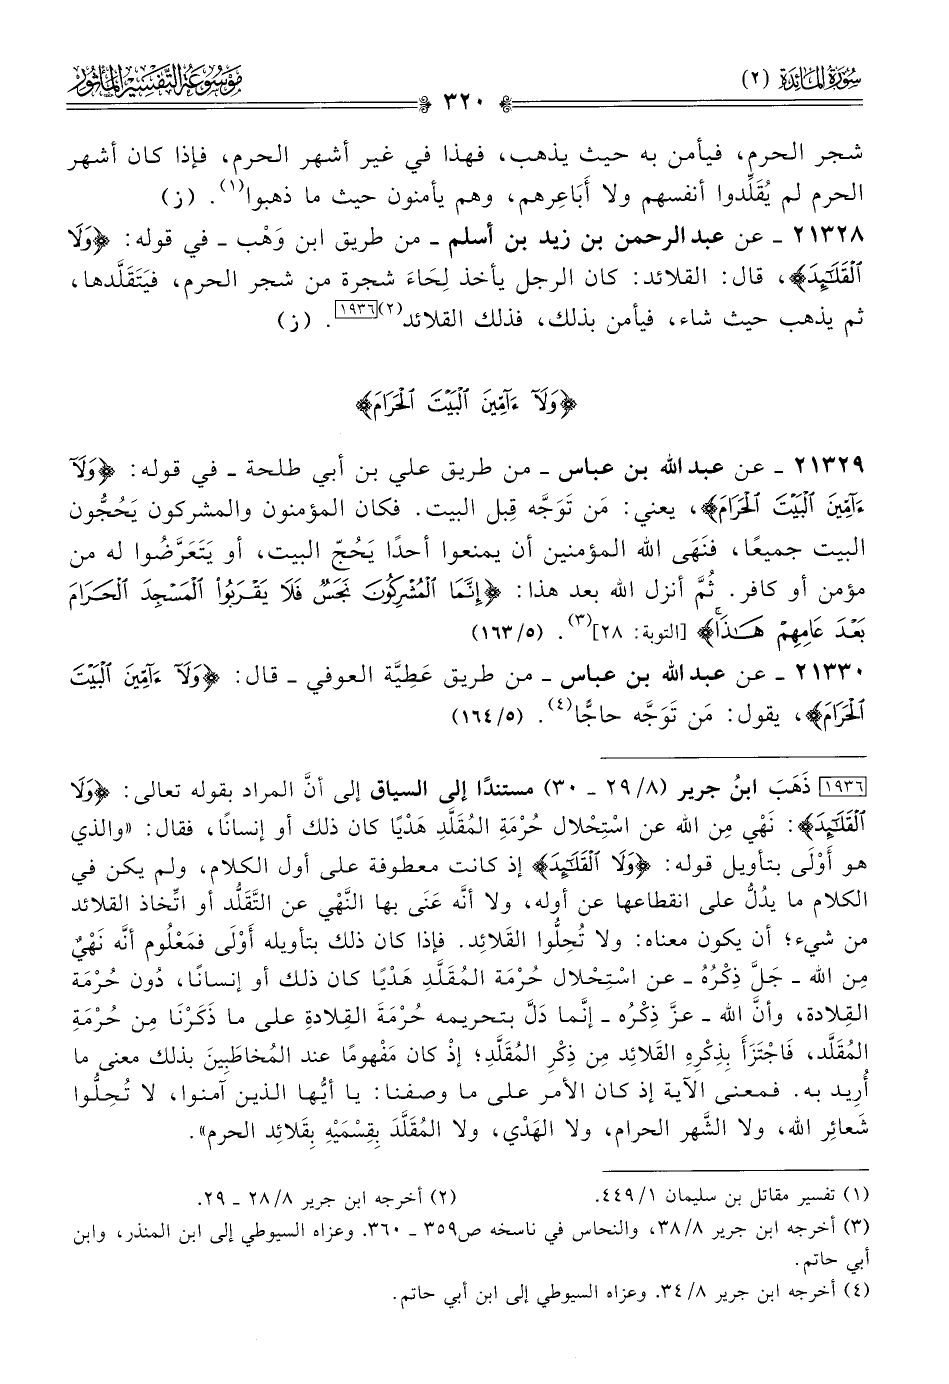 سُورَةُ المَائِدَة (٢)
٣٢٠
مَوْسُوعَةُ التَّفْسِيرِ المَأْثُورِ
شجر الحرم، فيأمن به حيث يذهب، فهذا في غير أشهر الحرم، فإذا كان أشهر
الحرم لم يُقَلِّدوا أنفسهم ولا أَبَاعِرهم، وهم يأمنون حيث ما ذهبوا(١). (ز)
٢١٣٢٨ ـ عن عبد الرحمن بن زيد بن أسلم ـ من طريق ابن وَهْب ـ في قوله: ﴿وَلَا
ٱلْقَلَـٰٓئِدَ﴾، قال: القلائد: كان الرجل يأخذ لِحَاءَ شجرة من شجر الحرم، فيَتَقَلَّدها،
ثم يذهب حيث شاء، فيأمن بذلك، فذلك القلائد(٢)[١٩٣٦]. (ز)
﴿وَلَآ ءَآمِّينَ ٱلْبَيْتَ ٱلْحَرَامَ﴾
٢١٣٢٩ ـ عن عبد الله بن عباس ـ من طريق علي بن أبي طلحة ـ في قوله: ﴿وَلَآ
ءَآمِّينَ ٱلْبَيْتَ ٱلْحَرَامَ﴾، يعني: مَن تَوَجَّه قِبل البيت. فكان المؤمنون والمشركون يَحُجُّون
البيت جميعًا، فنَهَى الله المؤمنين أن يمنعوا أحدًا يَحُجّ البيت، أو يَتَعَرَّضُوا له من
مؤمن أو كافر. ثُمَّ أنزل الله بعد هذا: ﴿إِنَّمَا ٱلْمُشْرِكُونَ نَجَسٌ فَلَا يَقْرَبُوا۟ ٱلْمَسْجِدَ ٱلْحَرَامَ
بَعْدَ عَامِهِمْ هَـٰذَا﴾ [التوبة: ٢٨](٣). (٥/١٦٣)
٢١٣٣٠ ـ عن عبد الله بن عباس ـ من طريق عَطِيَّة العوفي ـ قال: ﴿وَلَآ ءَآمِّينَ ٱلْبَيْتَ
ٱلْحَرَامَ﴾، يقول: مَن تَوَجَّه حاجًّا(٤). (٥/١٦٤)
[١٩٣٦] ذَهَبَ ابنُ جرير (٨/٢٩ ـ ٣٠) مستندًا إلى السياق إلى أنَّ المراد بقوله تعالى: ﴿وَلَا
ٱلْقَلَـٰٓئِدَ﴾: نَهْي مِن الله عن اسْتِحْلال حُرْمَةِ المُقَلَّد هَدْيًا كان ذلك أو إنسانًا، فقال: «والذي
هو أَوْلَى بتأويل قوله: ﴿وَلَا ٱلْقَلَـٰٓئِدَ﴾ إذ كانت معطوفة على أول الكلام، ولم يكن في
الكلام ما يدُلُّ على انقطاعها عن أوله، ولا أنَّه عَنَى بها النَّهْي عن التَّقَلُّد أو اتِّخاذ القلائد
من شيء؛ أن يكون معناه: ولا تُحِلُّوا القَلائِد. فإذا كان ذلك بتأويله أَوْلَى فمَعْلُوم أنَّه نَهْيٌ
مِن الله ـ جَلَّ ذِكْرُهُ ـ عن اسْتِحْلال حُرْمَة المُقَلَّدِ هَدْيًا كان ذلك أو إنسانًا، دُون حُرْمَة
القِلادة، وأنَّ الله ـ عزَّ ذِكْرُه ـ إنَّما دَلَّ بتحريمه حُرْمَةَ القِلادةِ على ما ذَكَرْنَا مِن حُرْمَةِ
المُقَلَّد، فَاجْتَزَأَ بِذِكْرِهِ القَلائِد مِن ذِكْرِ المُقَلَّد؛ إذْ كان مَفْهومًا عند المُخاطَبِينَ بذلك معنى ما
أُرِيد به. فمعنى الآية إذ كان الأمر على ما وصفنا: يا أيُّها الذين آمنوا، لا تُحِلُّوا
شَعائِر الله، ولا الشَّهر الحرام، ولا الهَدْي، ولا المُقَلَّدَ بِقِسْمَيْهِ بِقَلائِد الحرم».
(١) تفسير مقاتل بن سليمان ١/٤٤٩. (٢) أخرجه ابن جرير ٨/٢٨ ـ ٢٩.
(٣) أخرجه ابن جرير ٨/٣٨، والنحاس في ناسخه ص٣٥٩ ـ ٣٦٠. وعزاه السيوطي إلى ابن المنذر، وابن
أبي حاتم.
(٤) أخرجه ابن جرير ٨/٣٤. وعزاه السيوطي إلى ابن أبي حاتم.